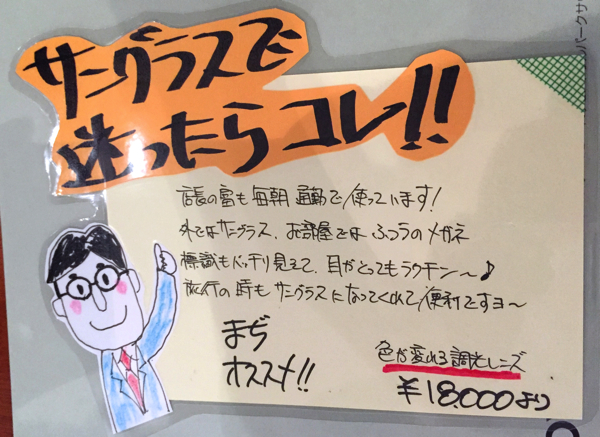 サングラスで
迷ったらコレ!!
店長の宮も毎朝通勤で使っています!
外ではサングラス、お部屋ではふつうのメガネ
標識もバッチリ見えて、目がとってもラクチン〜♪
旅行の時もサングラスになってくれて便利ですヨ〜
まぢ
オススメ!!
色が変わる調光レンズ
¥18,000より
パークサ